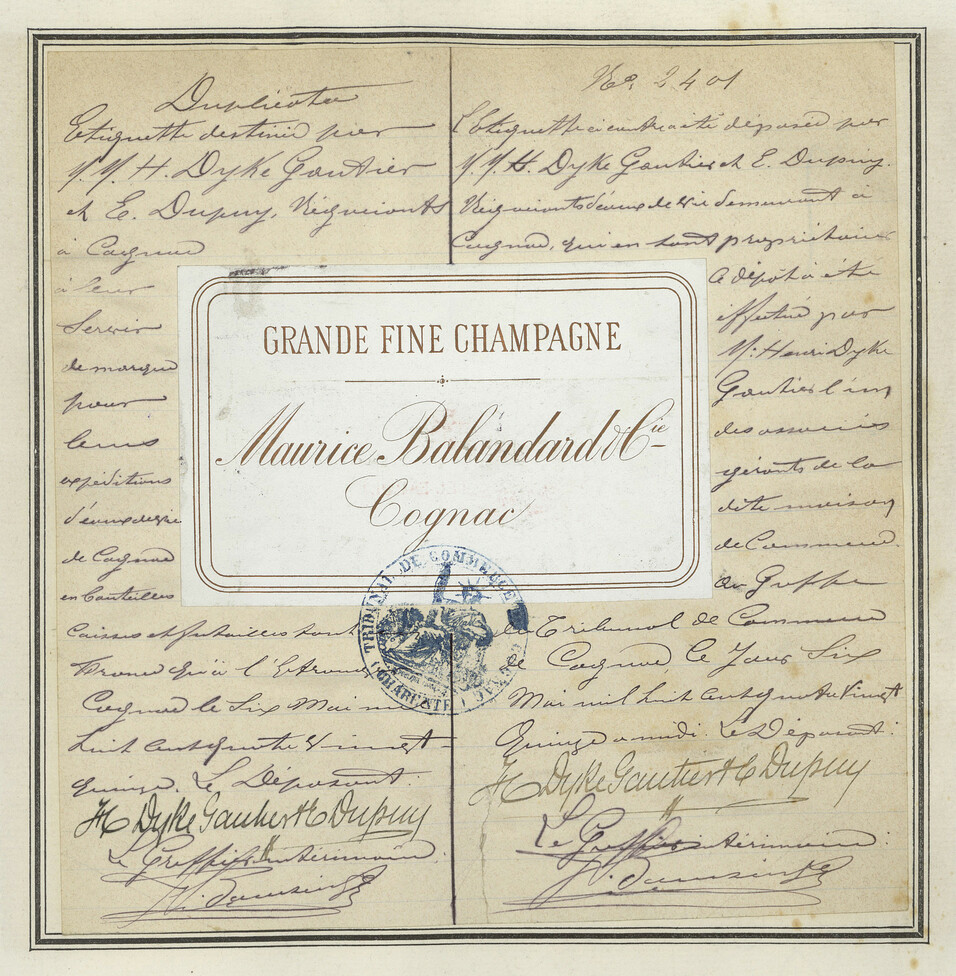 Duplicata
Etiquette destinée par
M.M. H. Dyke Gautier
et E. Dupuy, Négociants
à Cognac
à leur
Servir
de marque
pour
leurs
expéditions
d'eaux de vie
de Cognac
en bouteilles
Caisses et futailles tant en
France qu'à l'Etranger
Cognac le Six Mai mil
huit cent quatre vingt-
quinze. Le Déposant:
H Dyke Gautier & E Dupuy
Le Greffier intérimaire:
No. 2401
L'Etiquette ci contre a été déposée par
M.M. H. Dyke Gautier et E. Dupuy.
Négociants d'eaux de vie demeurant à
Cognac, qui en sont propriétaires
Ce dépôt a été
effectué par
M. Henri Dyke
Gautier l'un
des associés
gérants de la
dite maison
de Commerce
au Greffe
du Tribunal de Commerce
de Cognac le Jour Six
Mai mil huit cent quatre vingt
Quinze a midi. Le Déposant:
H Dyke Gautier & E Dupuy
Le Greffier intérimaire:
GRANDE FINE CHAMPAGNE
Maurice Balandard & Cie
Cognac
TRIBUNAL DE COMMERCE
(CHARENTE)